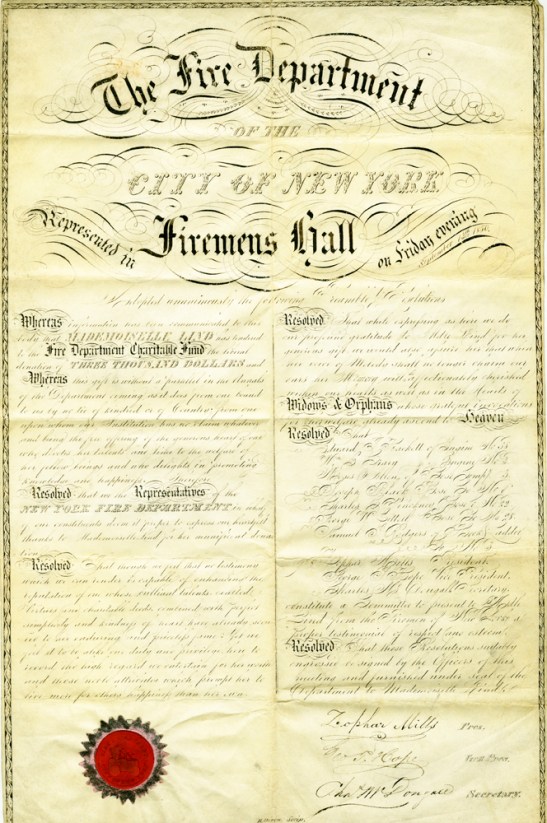 The Fire Department
OF THE
CITY OF NEW YORK
Represented in Firemens Hall on Friday evening
adopted unanimously the following Preamble & Resolutions
Whereas information has been communicated to this
body that MADEMOISELLE LIND has tendered
to the Fire Department Charitable Fund the liberal
donation of THREE THOUSAND DOLLARS and
Whereas this gift is without a parallel in the annals
of the Department coming as it does from one bound
to us by no ties of kindred or of Country from one
upon whom our Institution has no claim whatever
and being the free offering of the generous heart of one
who devotes her talents and time to the welfare of
her fellow beings and who delights in promoting
knowledge and happiness
Resolved that we the Representatives of the
NEW YORK FIRE DEPARTMENT in behalf
of our constituents deem it proper to express our heartfelt
thanks to Mademoiselle Lind for her munificent dona
tion
Resolved That though we feel that no testimony
which we can render be capable of enhancing the
reputation of one whose brilliant talents exalted
virtues and charitable deeds combined with perfect
simplicity and kindness of heart have already won
for her an enduring and priceless fame: Yet we
feel it to be alike our duty and privilege here to
record the high regard we entertain for her worth
and those noble attributes which prompt her to
live more for others happiness than her own
Resolved That while expressing as here we do
our profound gratitude to Mdlle Lind for her
generous gift we would also assure her that when
her voice of Melody shall no longer charm our
ears her Memory will be affectionately cherished
within our hearts as well as in the hearts of
Widows & Orphans whose grateful invocations
for her welfare already ascend to Heaven
Resolved That
of Engine No
Zophar Mills President
George T. Hope Vice President
Charles McDougall Secretary
constitute a Committee to present to Mdlle
Lind from the Firemen of New York a
proper testimonial of respect and esteem
Resolved That these Resolutions suitably
engrossed be signed by the Officers of this
meeting and furnished under seal of the
Department to Mademoiselle Lind
Zophar Mills Pres.
Geo T. Hope Vice Pres.
Chas McDougall Secretary.